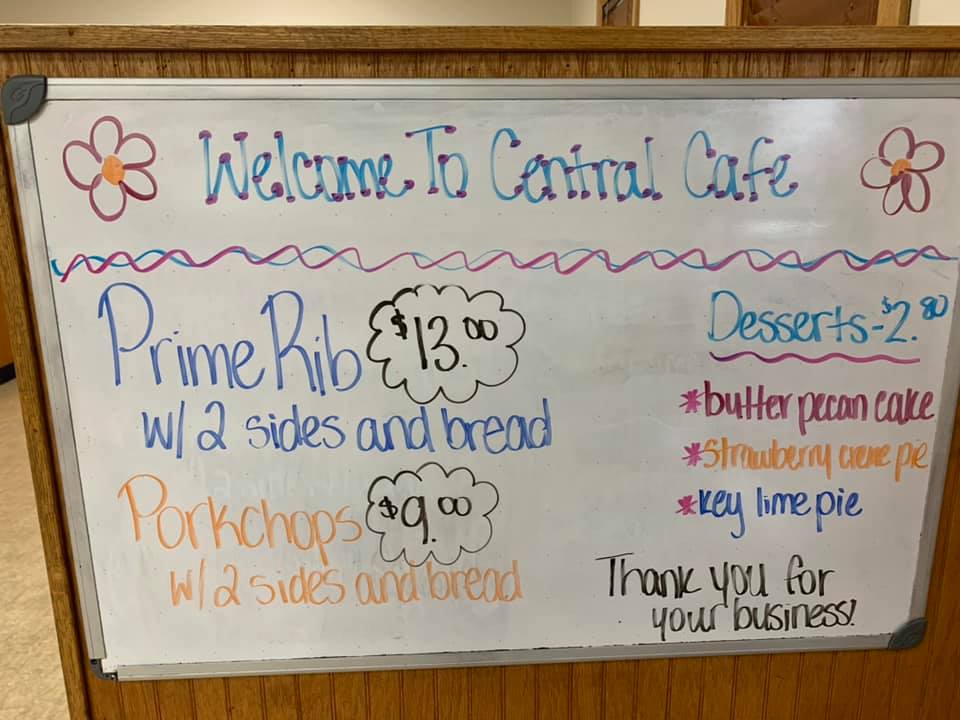 Welcome To Central Cafe
Prime Rib $13.00
w/2 sides and bread
Porkchops $9.00
w/2 sides and bread
Desserts-$2.80
*butter pecan cake
*Strawberry creme pie
*key lime pie
Thank you for
your business!